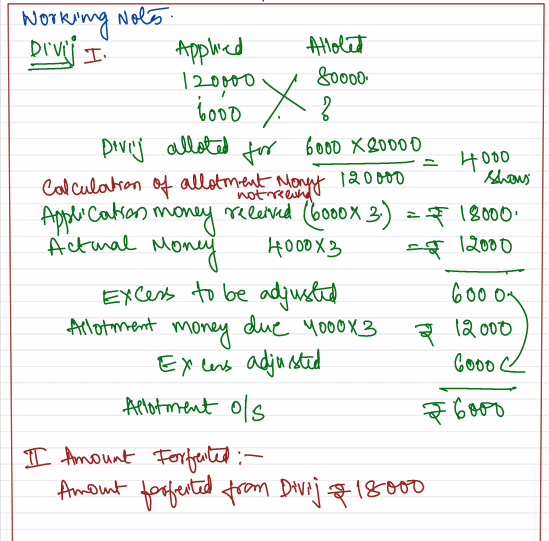 Working Notes.
Divij I. Applied Alloted
120000 80000.
6000 ?
Divij alloted for 6000 X 80000 / 120000 = 4000 shares
Calculation of allotment Money not received
Application money received (6000X3) = ₹ 18000.
Actual Money 4000X3 = ₹ 12000
Excess to be adjusted 6000
Allotment money due 4000X3 ₹ 12000
Excess adjusted 6000
Allotment O/S ₹ 6000
II Amount Forfeited :-
Amount forfeited from Divij ₹ 18000